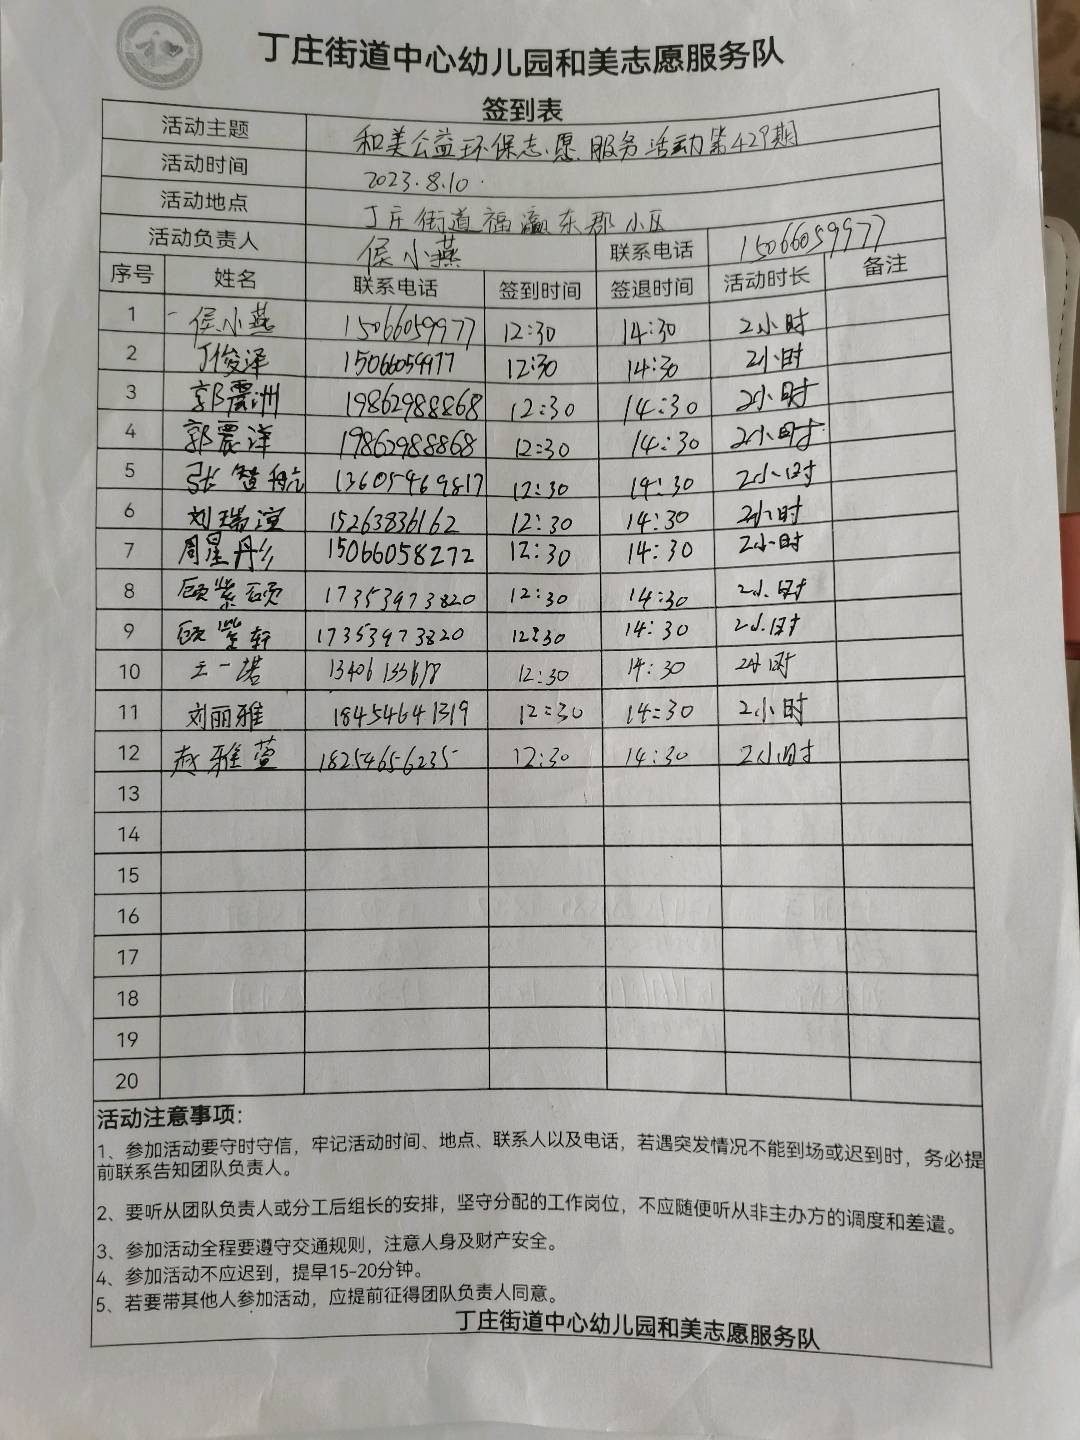 丁庄街道中心幼儿园和美志愿服务队
签到表
活动主题 和美公益环保志愿服务活动第429期
活动时间 2023.8.10
活动地点 丁庄街道福瀛东郡小区
活动负责人 侯小燕 联系电话 15066059977
序号 姓名 联系电话 签到时间 签退时间 活动时长 备注
1 侯小燕 15066059977 12:30 14:30 2小时
2 丁俊泽 15066059977 12:30 14:30 2小时
3 郭震洲 19862988868 12:30 14:30 2小时
4 郭震洋 19862988868 12:30 14:30 2小时
5 张楚航 13605469817 12:30 14:30 2小时
6 刘瑞渲 15263836162 12:30 14:30 2小时
7 周星彤 15066058272 12:30 14:30 2小时
8 顾紫硕 17353973820 12:30 14:30 2小时
9 顾紫轩 17353973820 12:30 14:30 2小时
10 12:30 14:30 2小时
11 刘丽雅 18454641319 12:30 14:30 2小时
12 赵雅萱 18254656235 12:30 14:30 2小时
13
14
15
16
17
18
19
20
活动注意事项：
1、参加活动要守时守信，牢记活动时间、地点、联系人以及电话，若遇突发情况不能到场或迟到时，务必提
前联系告知团队负责人。
2、要听从团队负责人或分工后组长的安排，坚守分配的工作岗位，不应随便听从非主办方的调度和差遣。
3、参加活动全程要遵守交通规则，注意人身及财产安全。
4、参加活动不应迟到，提早15-20分钟。
5、若要带其他人参加活动，应提前征得团队负责人同意。
丁庄街道中心幼儿园和美志愿服务队